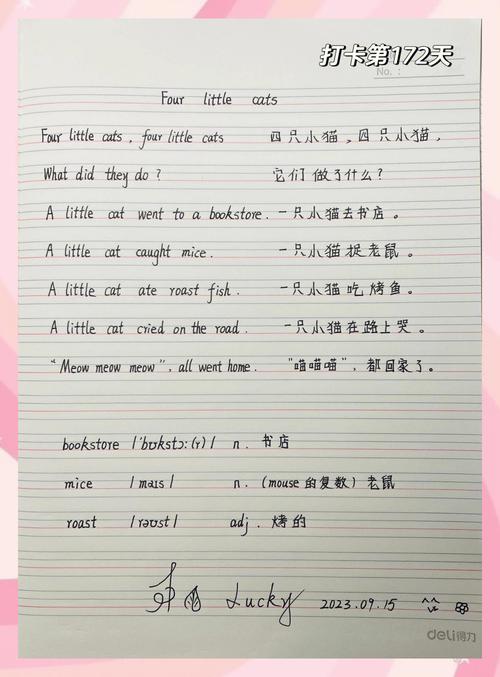 打卡第172天
No. :
Four little cats
Four little cats, four little cats 四只小猫,四只小猫,
What did they do? 它们做了什么?
A little cat went to a bookstore. 一只小猫去书店。
A little cat caught mice. 一只小猫捉老鼠。
A little cat ate roast fish. 一只小猫吃烤鱼。
A little cat cried on the road. 一只小猫在路上哭。
"Meow meow meow", all went home. "喵喵喵",都回家了。
bookstore /'bʊkstɔ:(r)/ n. 书店
mice /maɪs/ n. (mouse的复数)老鼠
roast /rəʊst/ adj. 烤的
Lucky 2023.09.15
deli得力